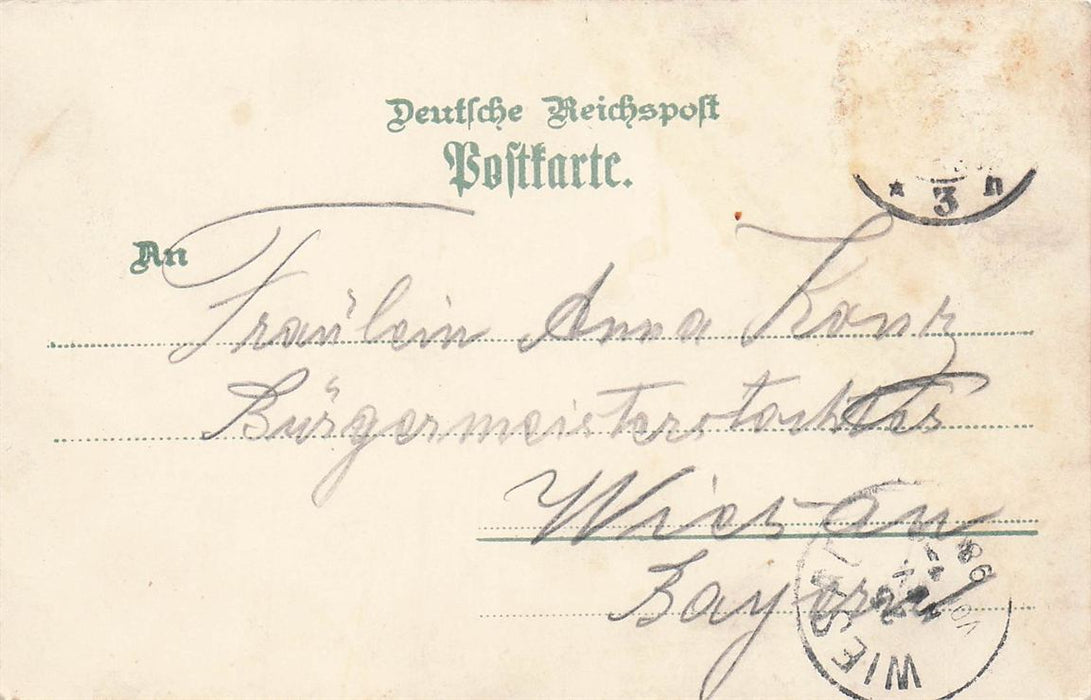 Deutsche Reichspost
Postkarte.
* 3 n
An
Fräulein Anna
Bürgermeisterstochter
Wiesau
Bayern
WIESAU
NOV
98